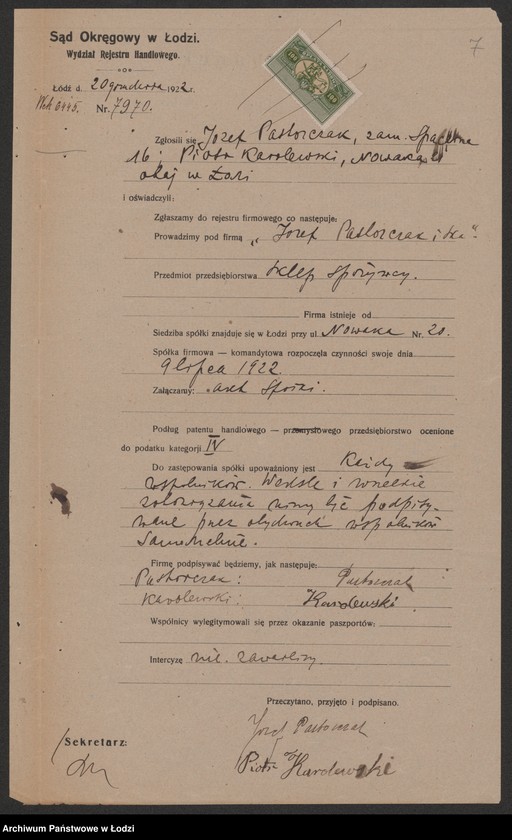 7
Sąd Okręgowy w Łodzi.
Wydział Rejestru Handlowego.
Łódź d. 20 grudnia 1922 r.
Nr. 7970.
Zgłosili się Józef Pastorczak, zam. Spacerna
16 i Piotr Karolewski, Nowaka
obaj w Łodzi
i oświadczyli:
Zgłaszamy do rejestru firmowego co następuje:
Prowadzimy pod firmą „Józef Pastorczak i Ska".
Przedmiot przedsiębiorstwa sklep spożywczy.
Firma istnieje od
Siedziba spółki znajduje się w Łodzi przy ul. Nowaka Nr. 20.
Spółka firmowa — komandytowa rozpoczęła czynności swoje dnia
9 lipca 1922.
Załączamy: akt spółki.
Podług patentu handlowego — przemysłowego przedsiębiorstwo ocenione
do podatku kategorji IV
Do zastępowania spółki upoważniony jest Każdy
wspólników. Weksle i wszelkie
zobowiązania muszą być podpisy-
wane przez obydwóch wspólników
Firmę podpisywać będziemy, jak następuje:
Pastorczak: Pastorczak
Karolewski: Karolewski.
Wspólnicy wylegitymowali się przez okazanie paszportów:
Intercyzę nie zawarliśmy.
Przeczytano, przyjęto i podpisano.
Józef Pastorczak
Sekretarz:
Piotr Karolewski
Archiwum Państwowe w Łodzi